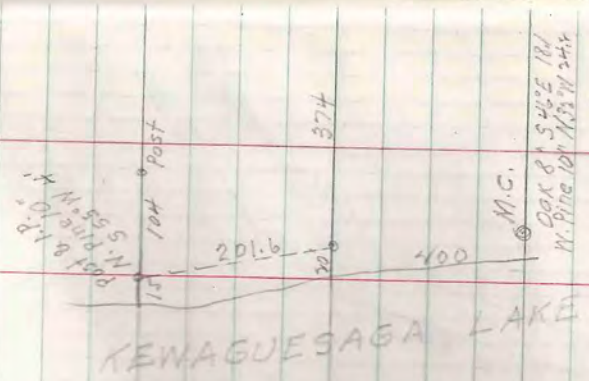 Post & I.P.
N. Pine 10"
S. 55° W 4'
104 Post
15
201.6
374
20
400
M.C.
Oak 8" S 46° E 18
W. Pine 10" N 33° W
KEWAGUESAGA LAKE